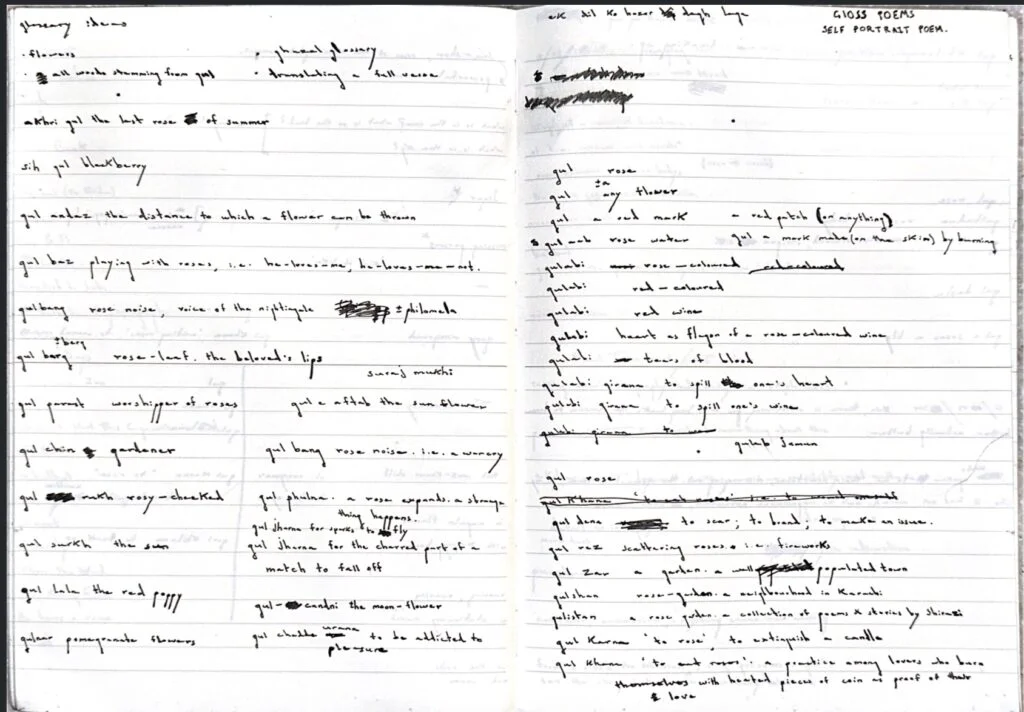 glossary ideas
· flowers
· ghazal glossary
· all words stemming from gul
· translating a full verse
akhri gul the last rose of summer
sih gul blackberry
gul andaz the distance to which a flower can be thrown
gul baz playing with roses, i.e. he-loves-me, he-loves-me-not.
gulbang rose noise, voice of the nightingale ± philomela
± berg
gul barg rose-leaf. the beloved's lips
suraj mukhi
gul parast worshipper of roses
gul e aftab the sun flower
gul chin gardener
gul bang rose noise. i.e. a warcry
gul rukh rosy-cheeked
gul phulna. a rose expands. a strange
thing happens.
gul jharna for sparks to fly
gul surkh the sun
gul jharna for the charred part of a
match to fall off
gul lala the red poppy
gul-candni the moon-flower
gulnar pomegranate flowers
gul chadde urana to be addicted to
pleasure
ek dil ko hazar dagh laga
GLOSS POEMS
SELF PORTRAIT POEM.
gul rose
± a
gul any flower
gul a red mark a red patch (on anything)
gul ab rose water gul a mark made (on the skin) by burning
gulabi rose-coloured red-coloured
gulabi red-coloured
gulabi red wine
gulabi heart as flagon of a rose-coloured wine
gulabi tears of blood
gulabi girana to spill one's heart
gulabi girana to spill one's wine
gulabi girana to
gulab jamun
gul rose
gul khana 'to eat roses' i.e. to
gul dena to scar; to brand; to make an issue.
gul rez scattering roses. i.e. fireworks
gul zar a garden. a well populated town
gulshan rose-garden. a neighbourhood in Karachi
gulistan a rose garden. a collection of poems & stories by shirazi
gul karna 'to rose', to extinguish a candle
gul khana 'to eat roses'. a practice among lovers who burn
themselves with heated pieces of coin as proof of their
love